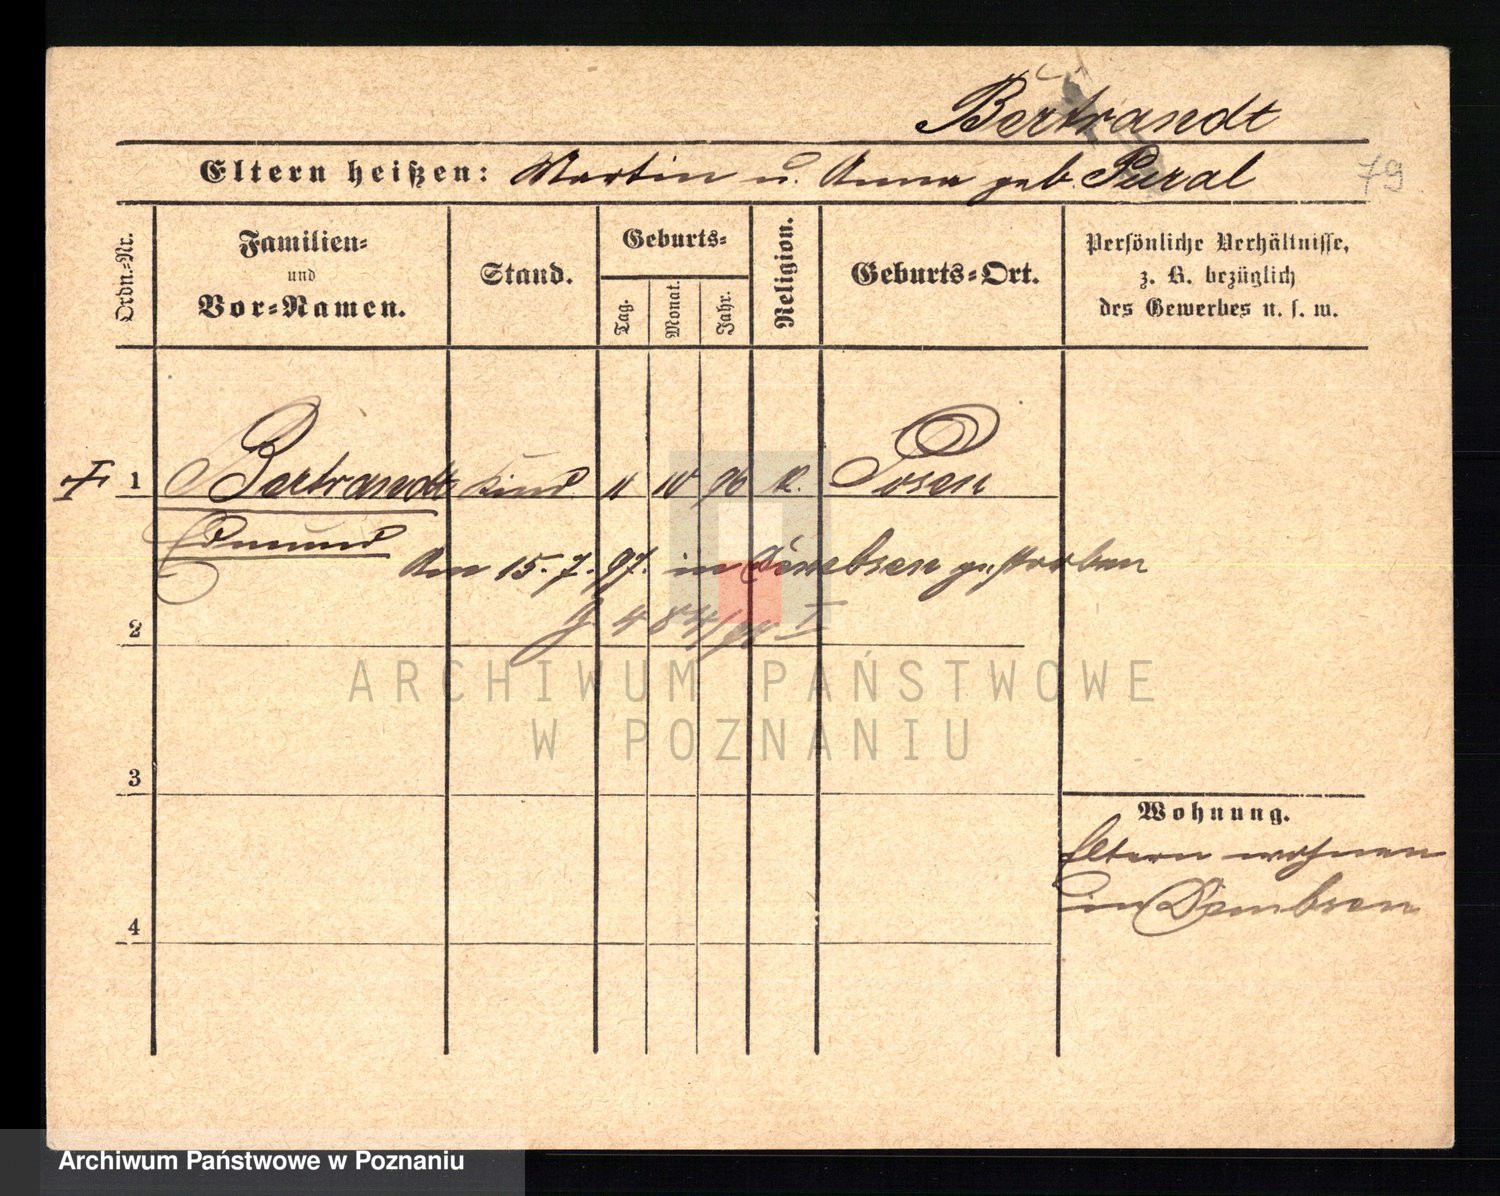 Bertrandt
Eltern heißen: Martin u. Anna geb. Pural
79
Ordn.-Nr.
Familien-
und
Vor-Namen.
Stand.
Geburts-
Tag.
Monat.
Jahr.
Religion.
Geburts-Ort.
Persönliche Verhältnisse,
z. B. bezüglich
des Gewerbes u. s. w.
1 Bertrandt Kind 11 10 96 K. Posen
Edmund
Am 15.7.97. in Dembsen gestorben
2
ARCHIWUM PAŃSTWOWE
W POZNANIU
3
Wohnung.
Eltern wohnen
in Dembsen
4
Archiwum Państwowe w Poznaniu